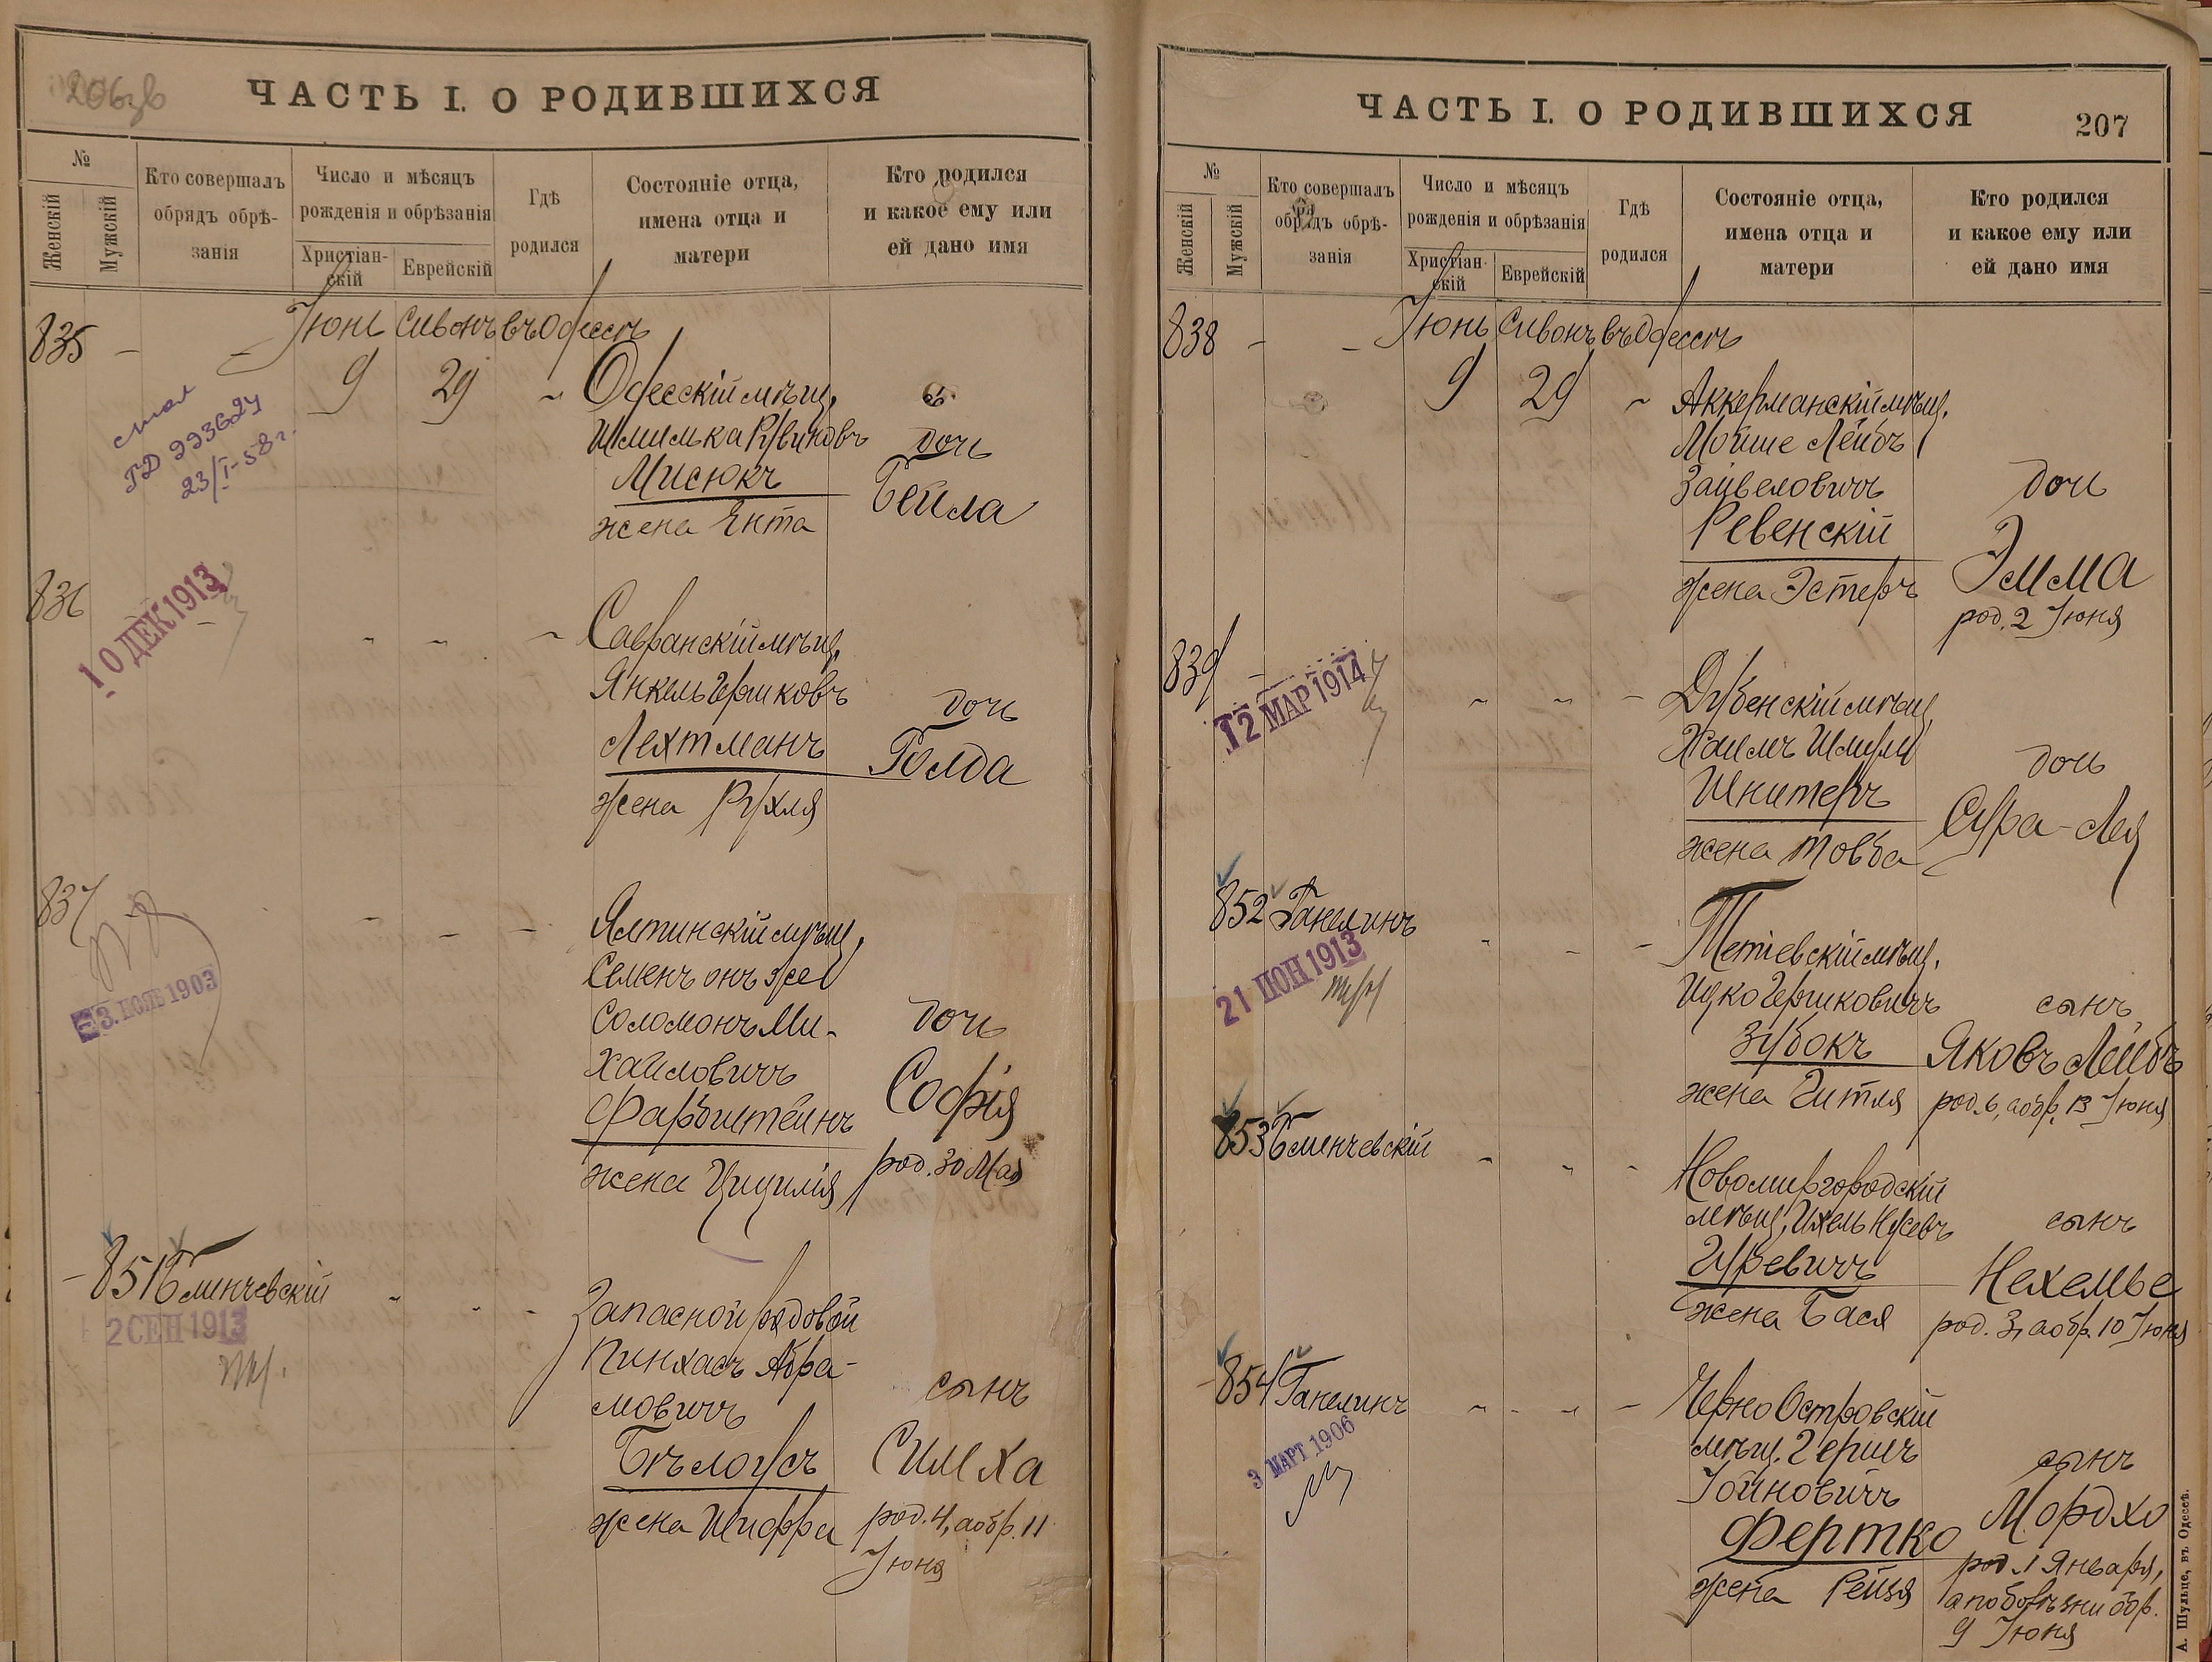 206
ЧАСТЬ I. О РОДИВШИХСЯ
№
Женскій
Мужскій
Кто совершалъ
обрядъ обрѣ-
занія
Число и мѣсяцъ
рожденія и обрѣзанія
Христіан-
скій
Еврейскій
Гдѣ
родился
Состояніе отца,
имена отца и
матери
Кто родился
и какое ему или
ей дано имя
835 - - Іюнь Сивонъ въ Одессѣ
9 29 Одесскій мѣщ.
Шмилька Рувиновъ дочь
Мисюкъ Бейла
жена Ента
ГД 993624
23/I-58 г.
836
10 ДЕК 1913
Савранскій мѣщ.
Янкель Гершковъ дочь
Лехтманъ Голда
жена Рухля
837
3. ИЮЛЬ 1903
Ялтинскій мѣщ.
Семенъ онъ же
Соломонъ Ми- дочь
хайловичъ Софія
Фарбштейнъ
жена Цицилія род. 30 Мая
851 Блинчевскій
2 СЕН 1913
Запасной рядовой
Пинхасъ Абра-
мовичъ сынъ
Бѣлоусъ Симха
жена Шифра род. 4, а обр. 11
Іюня
ЧАСТЬ I. О РОДИВШИХСЯ
207
№
Женскій
Мужскій
Кто совершалъ
обрядъ обрѣ-
занія
Число и мѣсяцъ
рожденія и обрѣзанія
Христіан-
скій
Еврейскій
Гдѣ
родился
Состояніе отца,
имена отца и
матери
Кто родился
и какое ему или
ей дано имя
838 - - Іюнь Сивонъ въ Одессѣ
9 29 Аккерманскій мѣщ.
Мойше Лейбъ
Зайвеловичъ дочь
Ревенскій
жена Эстеръ Эмма
род. 2 Іюня
839
12 МАР 1914
Дубенскій мѣщ.
Хаимъ Шмуль дочь
Шнитеръ
жена Товба Сура-Лея
852 Ганелинъ
21 ИЮН 1913
Тетіевскій мѣщ.
Ицко Гершковичъ сынъ
Зубокъ Яковъ Лейбъ
жена Гитля род. 6, а обр. 13 Іюня
853 Блинчевскій
Новомиргородскій
мѣщ. Ихель Нусевъ сынъ
Гуревичъ Нехемье
жена Бася род. 3, а обр. 10 Іюня
854 Ганелинъ
3 МАРТ 1906
ЧерноОстровскій
мѣщ. Гершъ сынъ
Іойновичъ Мордхо
Фертко
жена Рейзя род. 1 Января,
а по болѣзни обр.
9 Іюня
А. Шульце, въ Одессѣ.